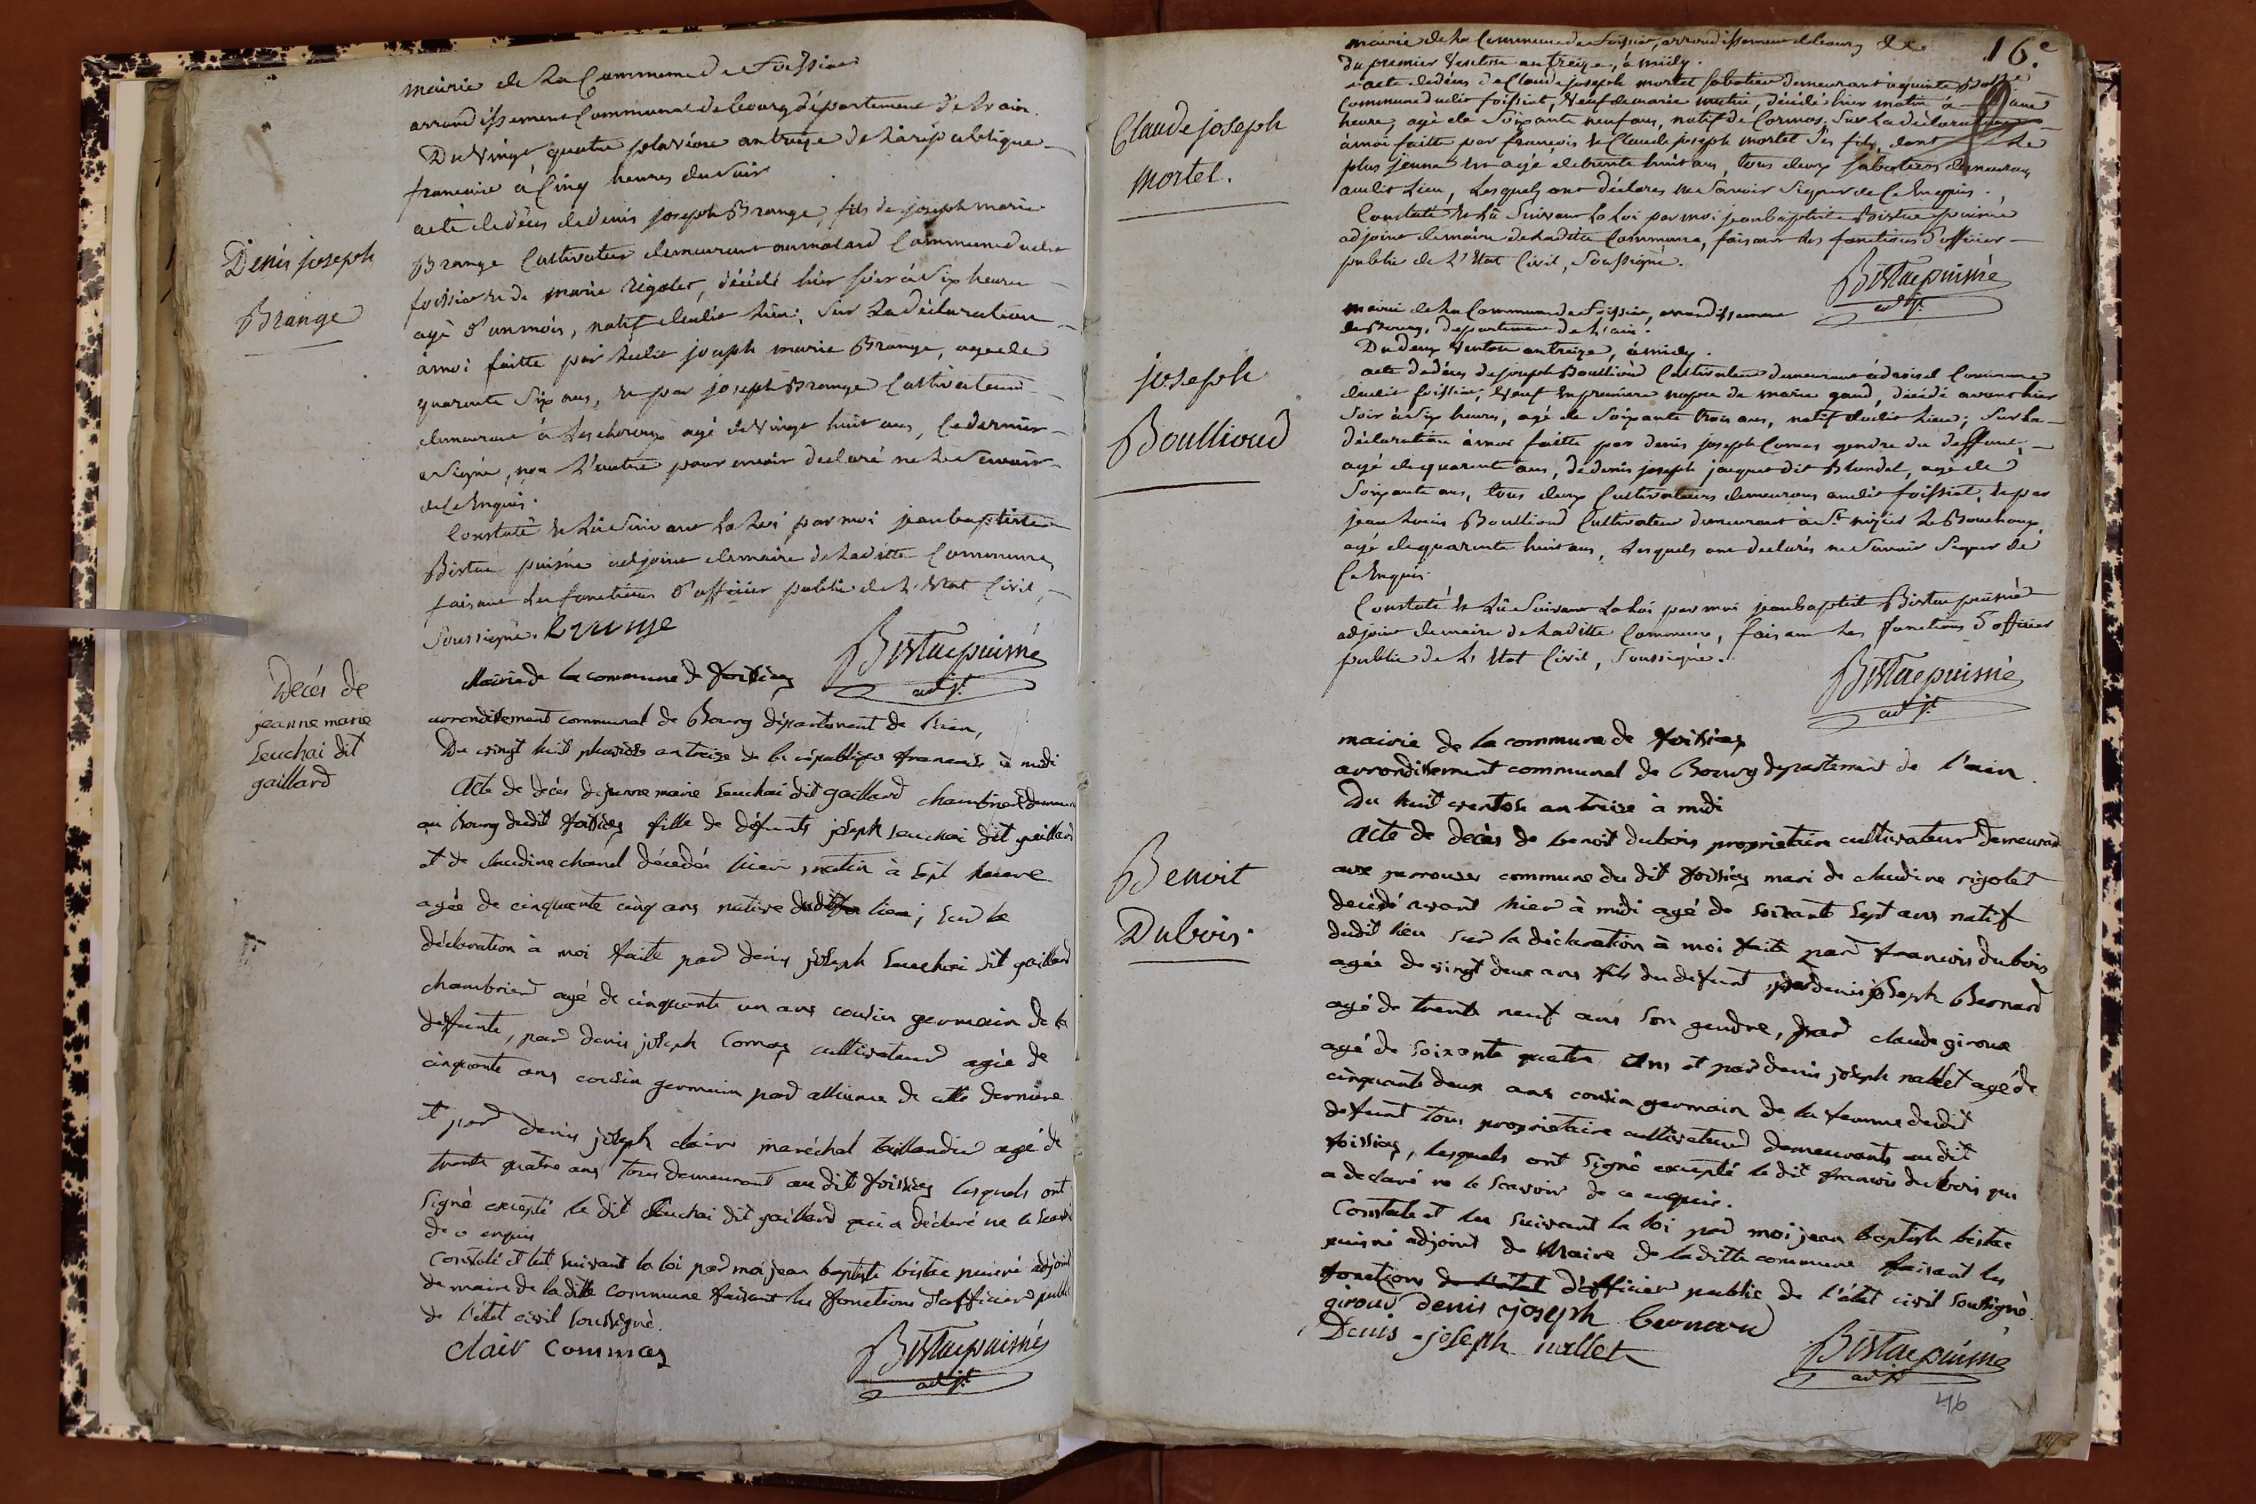 mairie de La Commune de Foissiat
arrondissement Communal de bourg département de Lain.
Du vingt quatre pluviôse an treize de La république
francaise à Cinq heures du soir
acte de décès de denis joseph Brange, fils de joseph marie
Brange Cultivateur demeurant au molard Commune dudit
foissiat et de marie rigolet, décédé hier soir à six heures
agé d'un mois, natif dudit Lieu; sur La déclaration
à moi faitte par Ledit joseph marie Brange, agé de
quarante six ans, et par joseph Brange Cultivateur
demeurant à agé de vingt huit ans, Ce dernier
a signé, non L'autre pour avoir declaré ne Le savoir
de Ce Enquis.
Constaté et Lû suivant La Loi par moi jean baptiste
Bistac puisné adjoint de maire de Laditte Commune,
faisant Les fonctions d'officier public de L'Etat Civil,
soussigné. Brange
Bistac puisné
adjt.
Denis joseph
Brange
Mairie de la commune de foissiat
arrondissement communal de Bourg département de L'ain,
Du vingt huit pluviose an treize de la république francaise à midi
Acte de décès de jeanne marie Leuchai dit gaillard demeurant
au Bourg dudit foissiat fille de défunts joseph Leuchai dit gaillard
et de claudine chanel décédée hier matin à sept heure
agée de cinquante cinq ans native dudit lieu; sur la
déclaration à moi faite par denis joseph Leuchai dit gaillard
chambrier agé de cinquante un ans cousin germain de la
deffunte, par denis joseph Comas cultivateur agée de
cinquante ans cousin germain par alliance de cette dernière
et par denis joseph clair maréchal taillandier agé de
trente quatre ans tous demeurant au dit foissiat lesquels ont
signé excepté le dit Leuchai dit gaillard qui a déclaré ne le scavoir
de ce enquis
Constaté et lut suivant la loi par moi jean baptiste bistac puisné adjoint
de maire de laditte commune faisant les fonctions d'officier public
de l'état civil soussigné.
clair Commas
Bistac puisné
adjt.
Decés de
jeanne marie
Leuchai dit
gaillard
16e.
mairie de La Commune de foissiat, arrondissement de bourg &c.
du premier Ventose an treize, à midy.
acte de décès de Claude joseph mortel sabotier demeurant à
Commune dudit foissiat, Veuf de marie décédé hier matin à
heure, agé de soixante neuf ans, natif de Cormoz; sur La déclaration
à moi faitte par françois et Claude joseph mortel ses fils, dont Le
plus jeune est agé de trente huit ans, tous deux sabotiers demeurans
audit Lieu, Lesquels ont déclarés ne savoir signer de Ce Enquis.
Constaté et Lû suivant La Loi par moi jean baptiste Bistac puisné
adjoint de maire de Laditte Commune, faisant Les fonctions d'officier
public de L'Etat Civil, soussigné.
Bistac puisné
adjt.
Claude joseph
mortel.
mairie de La Commune de foissiat, arrondissement
de Bourg, departement de L'ain.
Du deux Ventose an treize, à midy.
acte de décès de joseph Boullioud Cultivateur demeurant à Commune
dudit foissiat, Veuf en premiere nopce de marie gaud, décédé avant hier
soir à six heures, agé de soixante trois ans, natif dudit Lieu; sur La
déclaration à moi faitte par denis joseph Comas gendre du deffunt,
agé de quarente ans, de denis joseph jacquet dit Blondel, agé de
soixante ans, tous deux Cultivateurs demeurans audit foissiat, et par
jean Louis Boullioud Cultivateur demeurant à St. nizier Le Bouchoux,
agé de quarente huit ans, Lesquels ont declarés ne savoir signer de
Ce Enquis.
Constaté et Lû suivant La Loi par moi jean baptiste Bistac puisné
adjoint de maire de Laditte Commune, faisant Les fonctions d'officier
public de L'Etat Civil, soussigné.
Bistac puisné
adjt.
joseph
Boullioud
mairie de la commune de foissiat
arrondissement communal de Bourg departement de l'ain.
Du huit ventose an treize à midi
Acte de decès de benoit dubois proprietaire cultivateur demeurant
aux perrouses commune du dit foissiat mari de claudine rigolet
decédé avant hier à midi agé de soixante sept ans natif
dudit lieu sur la déclaration à moi faite par francois dubois
agée de vingt deux ans fils du defunt, par denis joseph Bernard
agé de trente neuf ans son gendre, par claude giroux
agé de soixante quatre ans et par denis joseph nallet agé de
cinquante deux ans cousin germain de la femme dudit
defunt tous proprietaire cultivateur demeurants au dit
foissiat, lesquels ont signé excepté le dit francois dubois qui
a declaré ne le scavoir de ce enquis.
Constaté et lu suivant la loi par moi jean baptiste bistac
puisné adjoint de Maire de laditte commune faisant les
fonctions de l'état d'officier public de l'état civil soussigné.
giroud denis joseph bernard
Denis joseph nallet
Bistac puisné
adjt
Benoit
Dubois.
46